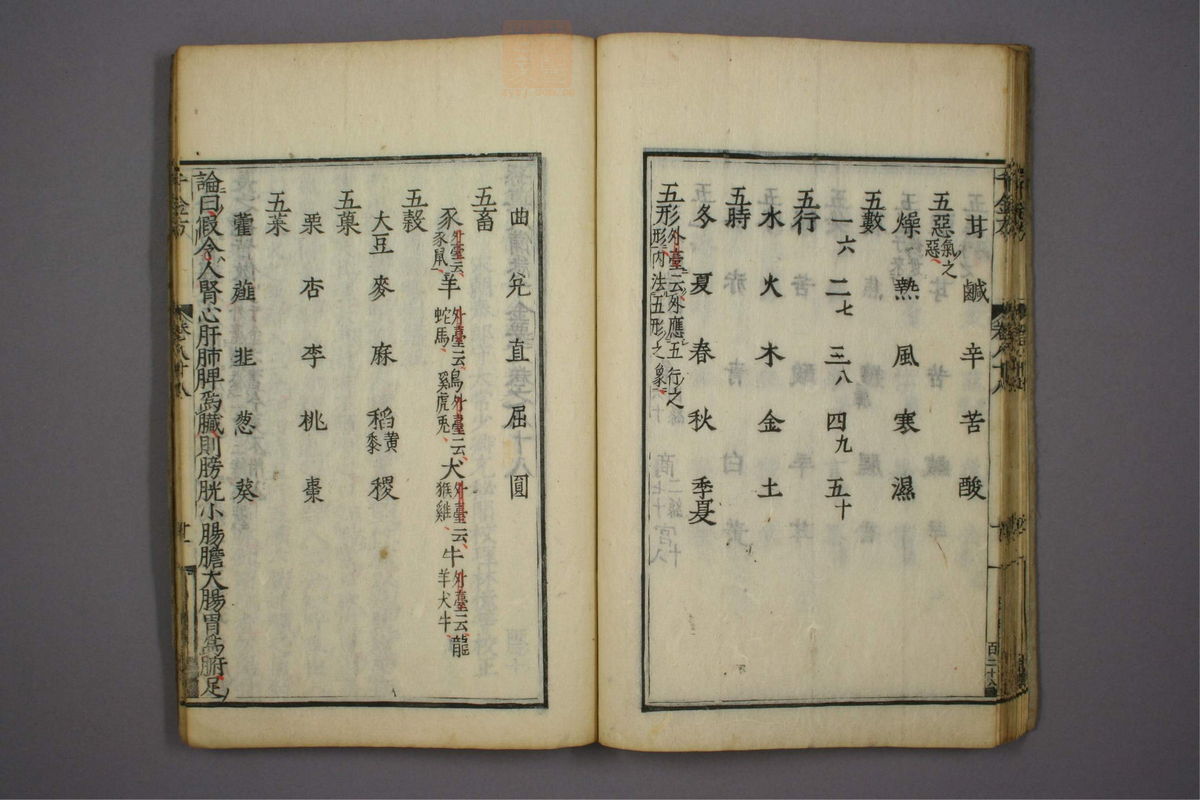 耳 鹹 辛 苦 酸
五惡氣之惡
燥 熱 風 寒 濕
五數
一六 二七 三八 四九 五十
五行
水 火 木 金 土
五時
冬 夏 春 秋 季夏
五形外臺云外應五行之形内法五形之象
曲 兊 直 屈 圓
五畜
豕外臺云豕鼠 羊外臺云蛇馬 鷄外臺云虎兎 犬外臺云猴雞 牛外臺云龍羊犬牛
五穀
大豆 麥 麻 稻黄黍 稷
五菓
栗 杏 李 桃 棗
五菜
藿 薤 韭 葱 葵
論曰假令人腎心肝肺脾爲臟則膀胱小腸膽大腸胃爲腑足
千金方 卷八十八